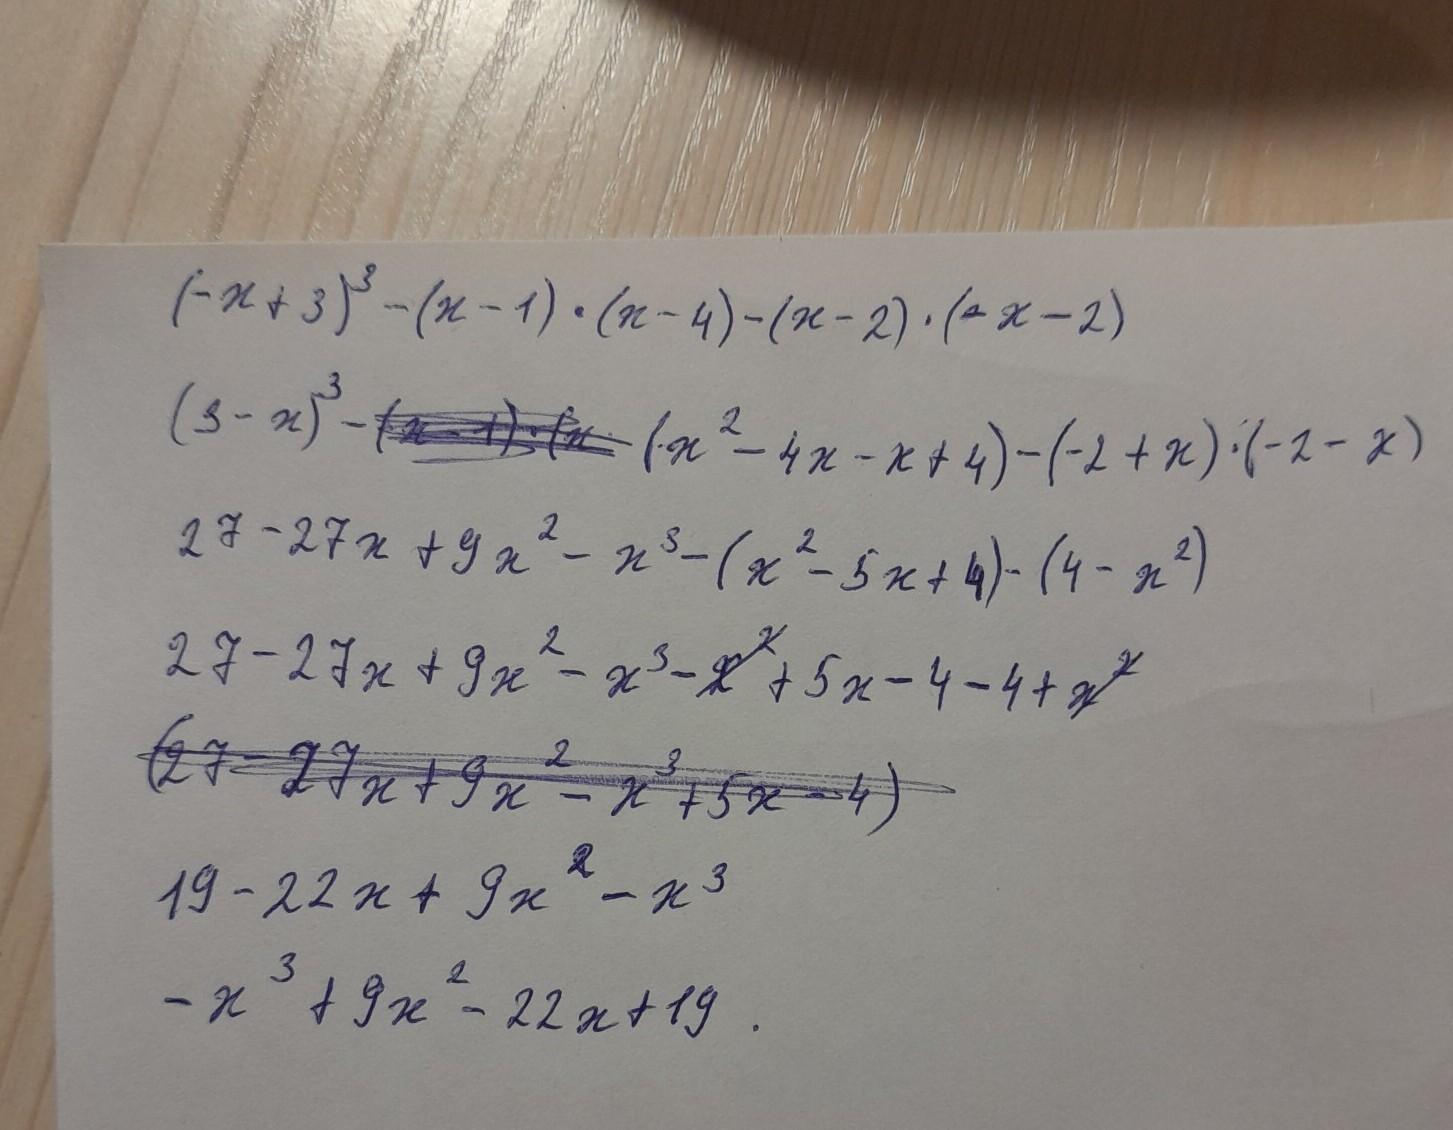 (-x+3)³-(x-1)·(x-4)-(x-2)·(-x-2)
(3-x)³-(x-1)·(x-(x²-4x-x+4)-(-2+x)·(-2-x)
27-27x+9x²-x³-(x²-5x+4)-(4-x²)
27-27x+9x²-x³-x²+5x-4-4+x²
(27-27x+9x²-x³+5x-4)
19-22x+9x²-x³
-x³+9x²-22x+19.